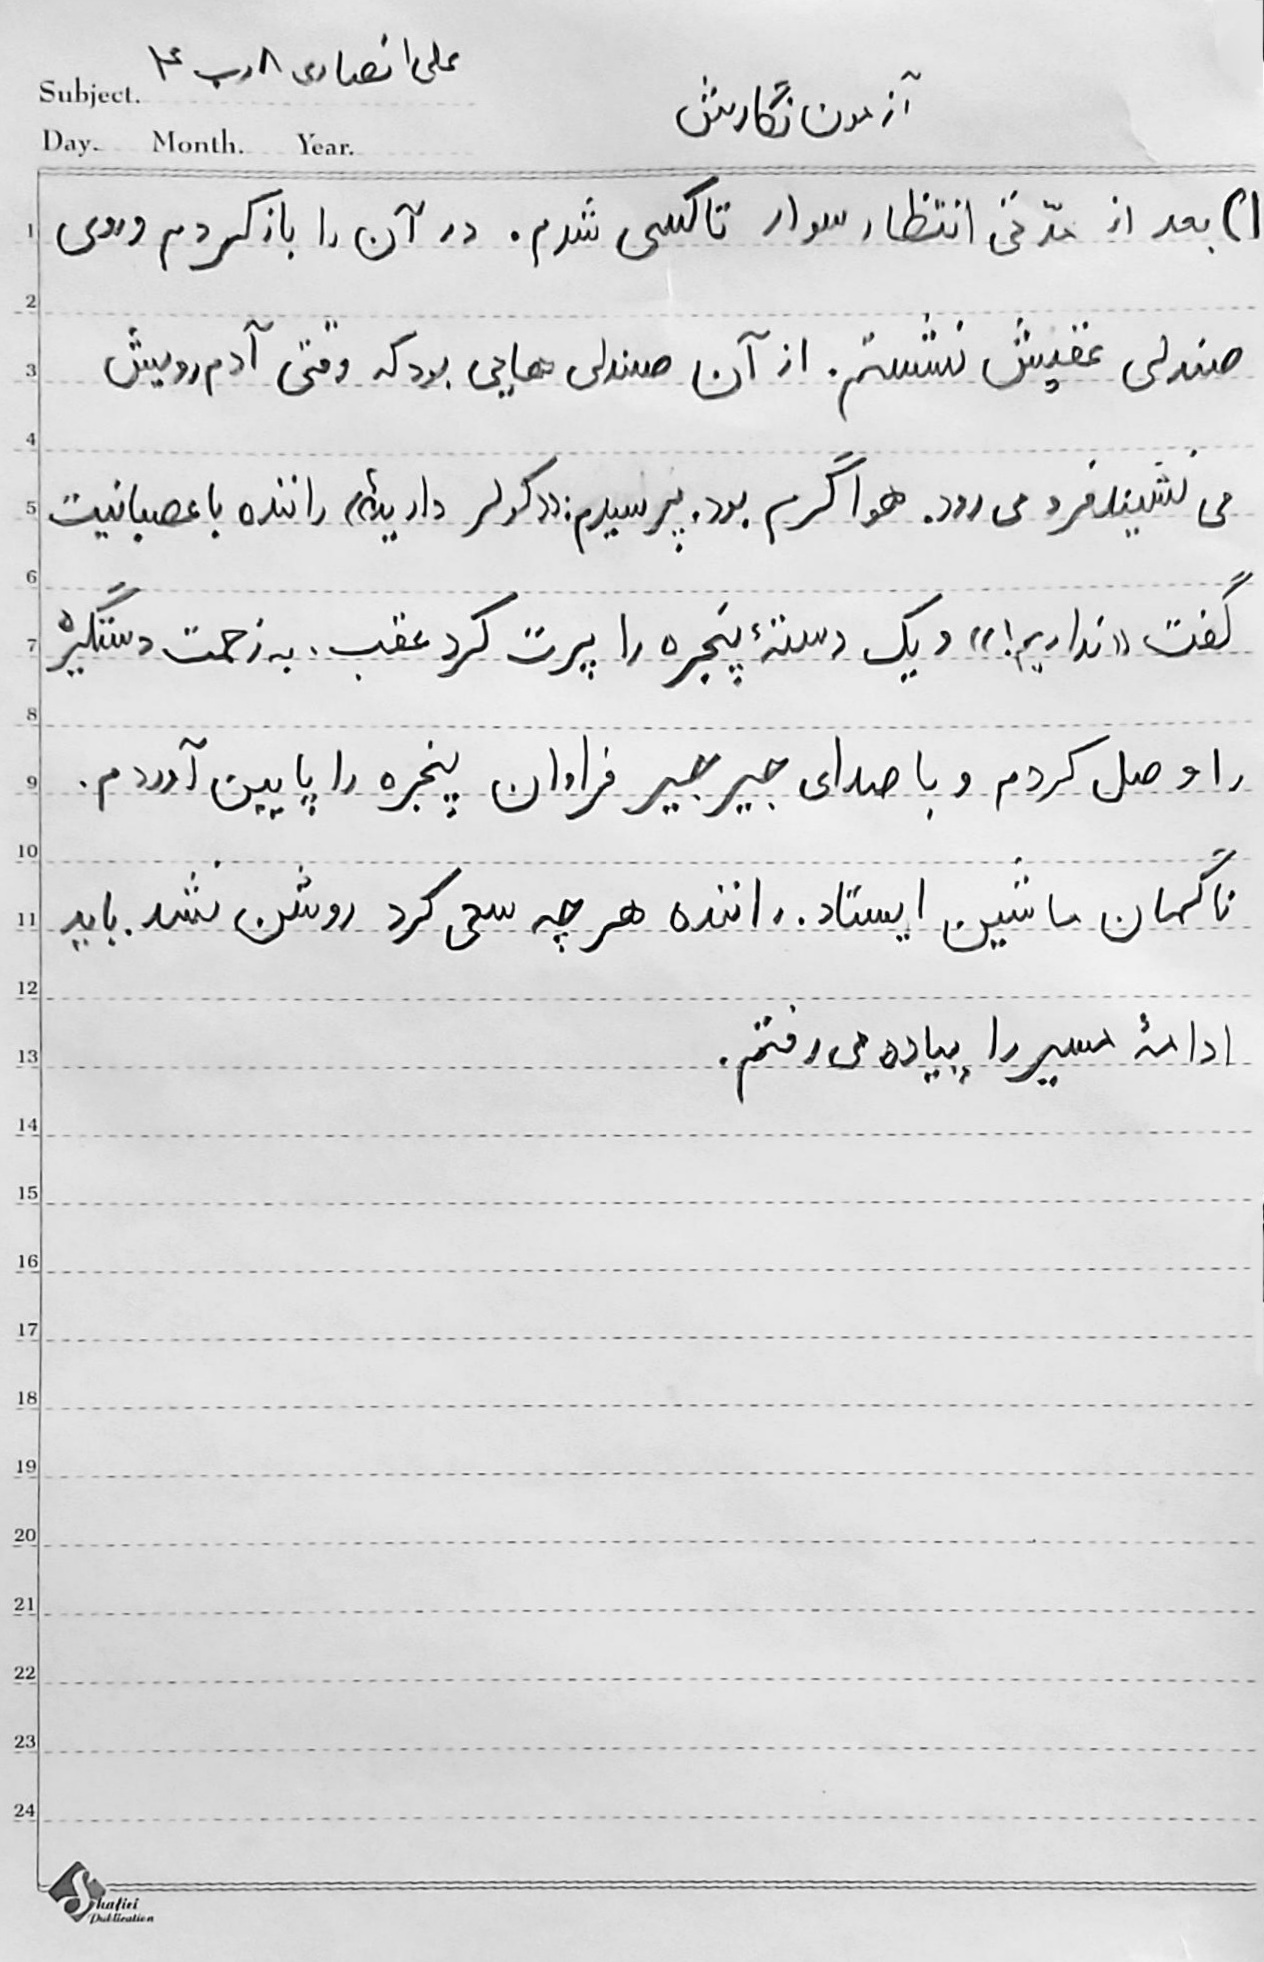 علی انصاری ۸رب ۴
Subject.
آزمون نگارش
Day. Month. Year.
۱) بعد از مدّتی انتظار سوار تاکسی شدم. در آن را باز کردم و روی
صندلی عقبیش نشستم. از آن صندلی هایی بود که وقتی آدم رویش
می نشیند فرو می رود. هوا گرم بود. پرسیدم: «کولر دارید؟» راننده با عصبانیت
گفت «نداریم!» و یک دستهٔ پنجره را پرت کرد عقب. به زحمت دستگیره
را وصل کردم و با صدای جیر جیر فراوان پنجره را پایین آوردم.
ناگهان ماشین ایستاد. راننده هر چه سعی کرد روشن نشد. باید
ادامهٔ مسیر را پیاده می رفتم.
1
2
3
4
5
6
7
8
9
10
11
12
13
14
15
16
17
18
19
20
21
22
23
24
Shafiei
Publication